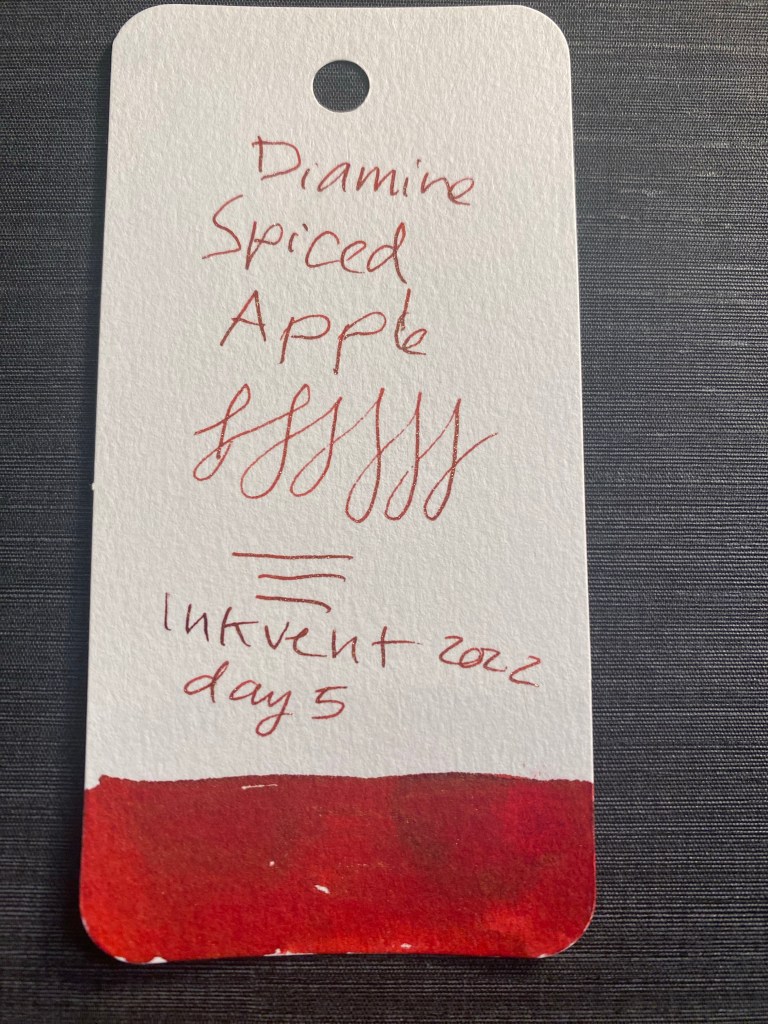 Diamine
Spiced
Apple
Inkvent 2022
day 5